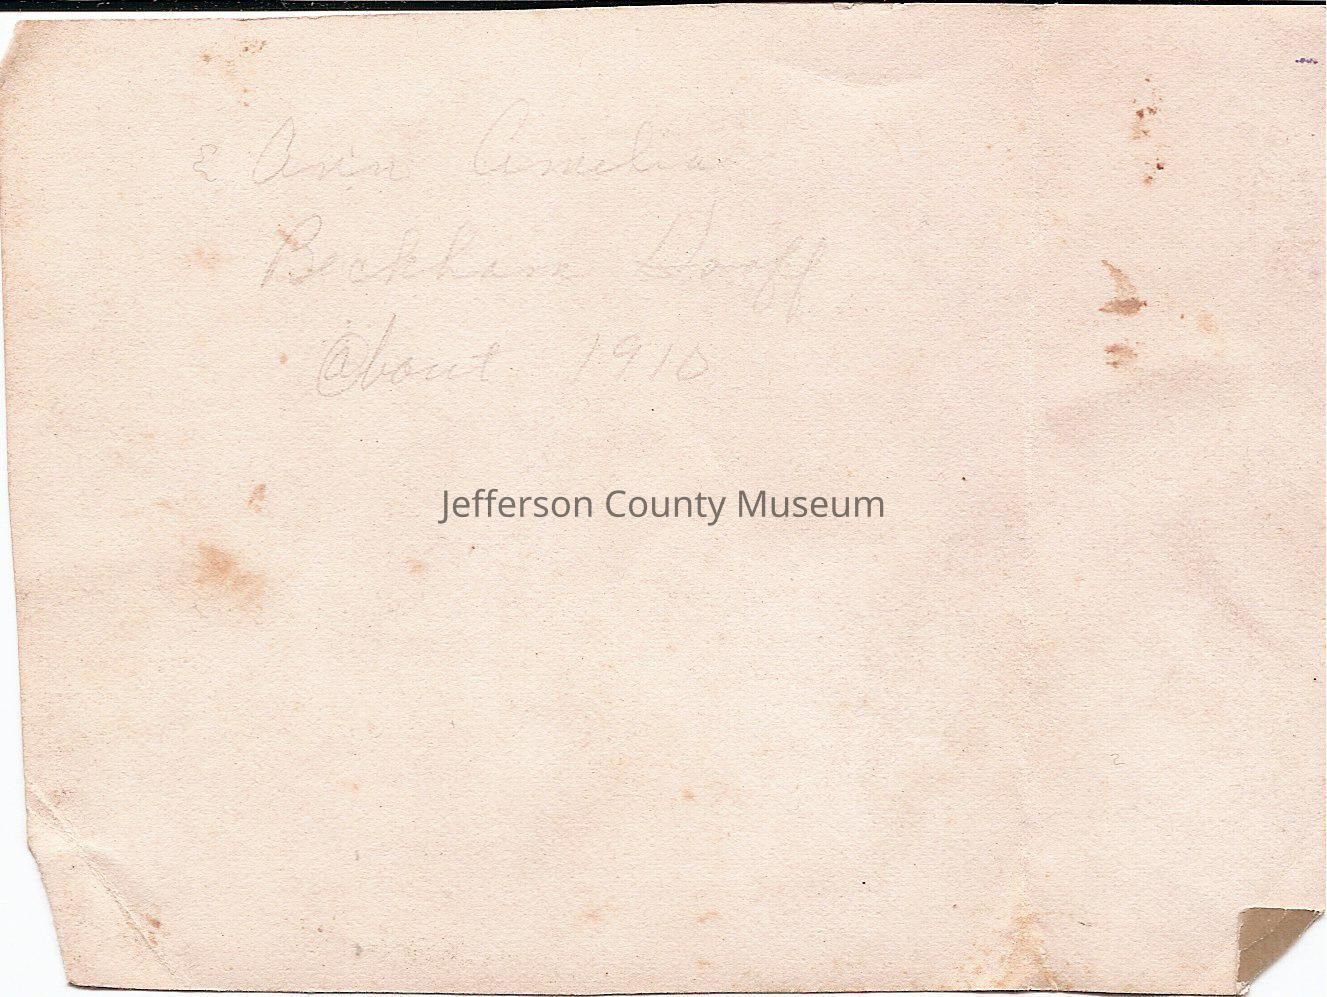 & Ann Amelia
Beckham Hooff
About 1910
Jefferson County Museum